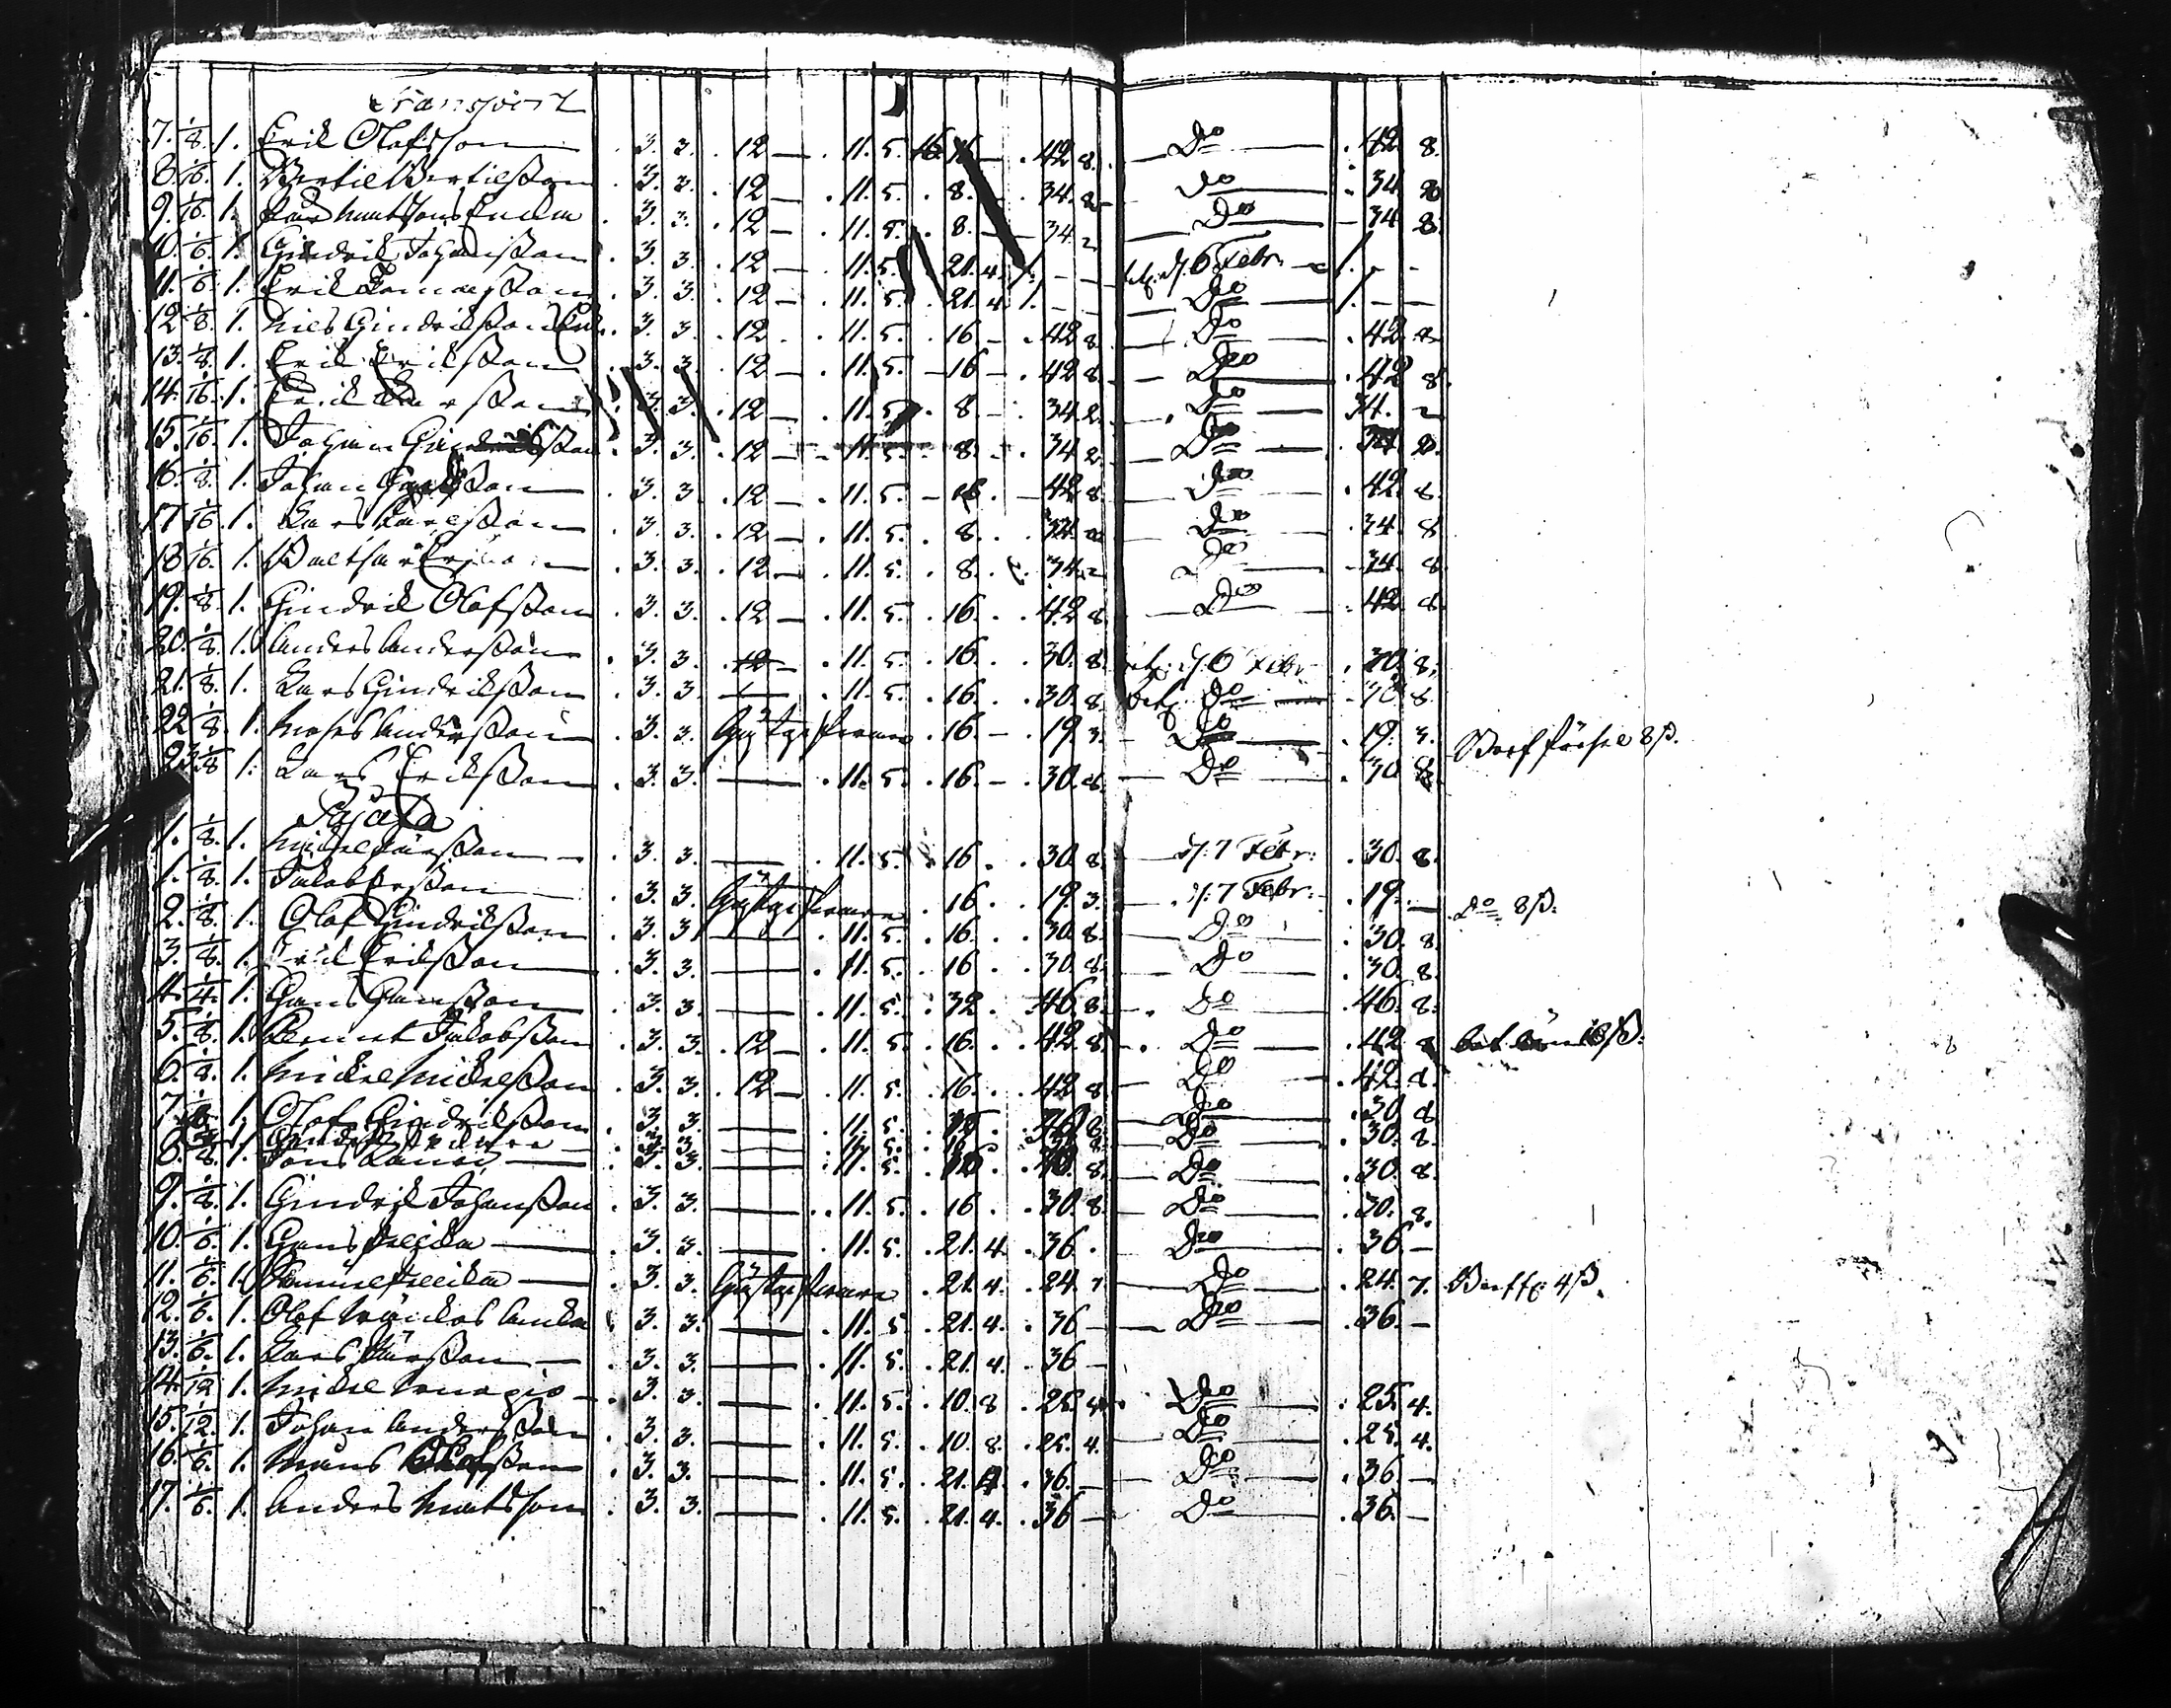 Transport
7. 1/8. 1. Erik Olofsson . 3. 3. . 12 — . 11. 5. 16 — . 42 8. — Do — . 42 8.
8. 1/16. 1. Bertil Bertilsson . 3. 3. . 12 — . 11. 5. . 8. — . 34. 2 — Do — . 34 2
9. 1/16. 1. Lars Mattsons Enka . 3. 3. . 12 — . 11. 5. . 8. — 34. 2 — Do — 34 8.
10. 1/6. 1. Hindrik Johansson . 3. 3. . 12 — . 11. 5. . 21. 4. 1. — — d. 6 Febr. — 1. — —
11. 1/6. 1. Erik . 3. 3. . 12 — . 11. 5. . 21. 4. 1. — — Do — 1. — —
12. 1/8. 1. Nils Hindriksson Enk. . 3. 3. . 12. . 11. 5. . 16 — . 42 8. — Do — . 42 8
13. 1/8. 1. Erik Eriksson . 3. 3. . 12 — . 11. 5. — 16 — . 42 8. — Do — . 42 8.
14. 1/16. 1. Erik Larsson . 3. 3. . 12 — . 11. 5. . 8 — . 34. 2. — Do — 34. 2
15. 1/16. 1. Johan Hindriksson . 3. 3. . 12 — . 11. 5. . 8. — . 34 2. — Do — . 34 2.
16. 1/8. 1. Johan . 3. 3. . 12 — . 11. 5. — 16. — 42 8. Do . 42. 8.
17. 1/16. 1. Lars Larsson . 3. 3. . 12 — . 11. 5. . 8. . 34. 2 Do . 34. 8
18. 1/16. 1. Balthsar . 3. 3. . 12 — . 11. 5. . 8. . 34. 2 Do — 34. 8.
19. 1/8. 1. Hindrik Olofsson . 3. 3. . 12 — . 11. 5. . 16. . 42 8. — Do — . 42. 8.
20. 1/8. 1. Anders Andersson . 3. 3. . 12 — . 11. 5. . 16. . . 30. 8. bet. d. 6 Febr . 30. 8.
21. 1/8. 1. Lars Hindriksson . 3. 3. — . 11. 5. . 16. . . 30. 8. bet. Do — 30 8.
22. 1/8. 1. Mats Andersson . 3. 3. Gästgifvaren . 16. — . 19. 3. — Do — . 19. 3. 8 ß.
23. 1/8 1. Lars Eriksson . 3. 3. — . 11. 5. . 16. — . 30. 8. — Do — . 30 8
Pajala
1. 1/8. 1. Mickel Larsson . 3. 3. — . 11. 5. . 16 . . 30. 8. — d. 7 Febr. . 30. 8.
1. 1/8. 1. Jakob . 3. 3. Gästgifvaren . 16 . 19. 3. — d. 7 Febr. . 19. — Do 8 ß.
2. 1/8. 1. Olof Hindriksson . 3. 3. — . 11. 5. . 16. . . 30. 8. — Do — . 30. 8.
3. 1/8. 1. Erik Eriksson . 3. 3. — . 11. 5. . 16 . . 30. 8. — Do — . 30. 8.
4. 1/4. 1. Hans Hansson . 3. 3. — . 11. 5. . 32. . 46. 8. — Do — . 46. 8.
5. 1/8. 1. Jakobsson . 3. 3. . 12 — . 11. 5. . 16. . . 42. 8. . Do — . 42. 8
6. 1/8. 1. Mickel Mickelsson . 3. 3. . 12 — . 11. 5. . 16. . . 42. 8. — Do . 42. 8.
7. 1. Olof Hindriksson . 3. 3. — . 11. 5. — Do — . 30 8
8. 1/8. 1. Jöns . 3. 3. — . 11. 5. . 8. Do . 30. 8.
9. 1/8. 1. Hindrik Johansson . 3. 3. — . 11. 5. . 16 . . 30. 8. — Do — . 30. 8.
10. 1/6. 1. Hans — . 3. 3. — . 11. 5. . 21. 4. . 36. . Do — . 36. —
11. 1/6. 1. Samuel — . 3. 3. Gästgifvaren . 21. 4. . 24. 7 — Do — . 24. 7. 4 ß.
12. 1/6. 1. Olof . 3. 3. — . 11. 5. . 21. 4. . 36 — Do — . 36. —
13. 1/6. 1. Lars Larsson — . 3. 3. — . 11. 5. . 21. 4. . 36 —
14. 1/12 1. Mickel . 3. 3. — . 11. 5. . 10. 8 . 25. 4. Do . 25. 4.
15. 1/12. 1. Johan Andersson . 3. 3. — . 11. 5. . 10. 8. . 25. 4. Do . 25. 4.
16. 1/6. 1. Måns Olofsson . 3. 3. — . 11. 5. . 21. 4. . 36. — Do . 36. —
17. 1/6. 1. Anders Mattsson . 3. 3. — . 11. 5. . 21. 4. . 36 — Do . 36. —